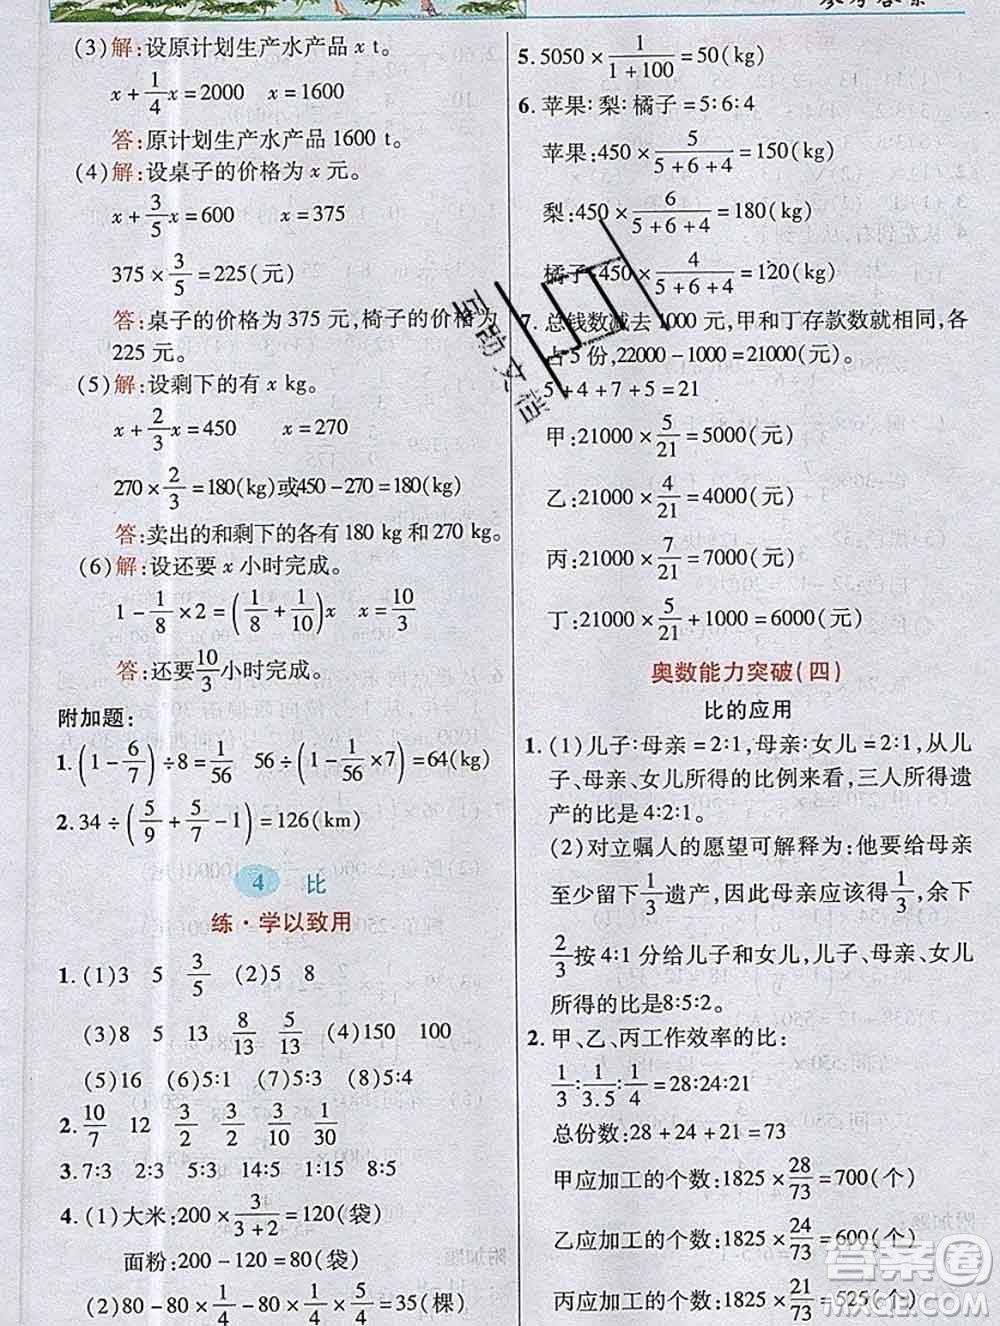 参考答案
(3)解:设原计划生产水产品 x t。
x+1/4x=2000 x=1600
答:原计划生产水产品 1600 t。
(4)解:设桌子的价格为 x 元。
x+3/5x=600 x=375
375×3/5=225(元)
答:桌子的价格为 375 元,椅子的价格为
225 元。
(5)解:设剩下的有 x kg。
x+2/3x=450 x=270
270×2/3=180(kg)或450-270=180(kg)
答:卖出的和剩下的各有 180 kg 和 270 kg。
(6)解:设还要 x 小时完成。
1-1/8×2=(1/8+1/10)x x=10/3
答:还要10/3小时完成。
附加题:
1.(1-6/7)÷8=1/56 56÷(1-1/56×7)=64(kg)
2.34÷(5/9+5/7-1)=126(km)
4 比
练·学以致用
1.(1)3 5 3/5 (2)5 8
(3)8 5 13 8/13 5/13 (4)150 100
(5)16 (6)7∶1 (7)60 (8)5∶4
2.10/7 12 3/2 3/2 1/10 1/30
3.7∶3 5∶7 14∶5 1∶16 8∶5
4.(1)大米:200×3/(3+2)=120(袋)
面粉:200-120=80(袋)
(2)80-80×1/4-80×5/(5+11)=35(棵)
5.5050×1/(1+100)=50(kg)
6.苹果∶梨∶橘子=5∶6∶4
苹果:450×5/(5+6+4)=150(kg)
梨:450×6/(5+6+4)=180(kg)
橘子:450×4/(5+6+4)=120(kg)
7.总钱数减去 1000 元,甲和丁存款数就相同,各
占 5 份,22000-1000=21000(元)。
5+4+7+5=21
甲:21000×5/21=5000(元)
乙:21000×4/21=4000(元)
丙:21000×7/21=7000(元)
丁:21000×5/21+1000=6000(元)
奥数能力突破(四)
比的应用
1.(1)儿子∶母亲=2∶1,母亲∶女儿=2∶1,从儿
子、母亲、女儿所得的比例来看,三人所得遗
产的比是 4∶2∶1。
(2)对立嘱人的愿望可解释为:他要给母亲
至少留下1/3遗产,母亲已得1/3,把剩下的
2/3按 4∶1 分给儿子和女儿,儿子、母亲、女儿
所得的比是8∶5∶2。
2.甲、乙、丙工作效率的比:
1/3∶1/3.5∶1/4=28∶24∶21
总份数:28+24+21=73
甲应加工的个数:1825×28/73=700(个)
乙应加工的个数:1825×24/73=600(个)
丙应加工的个数:1825×21/73=525(个)
互动文档
答案圈